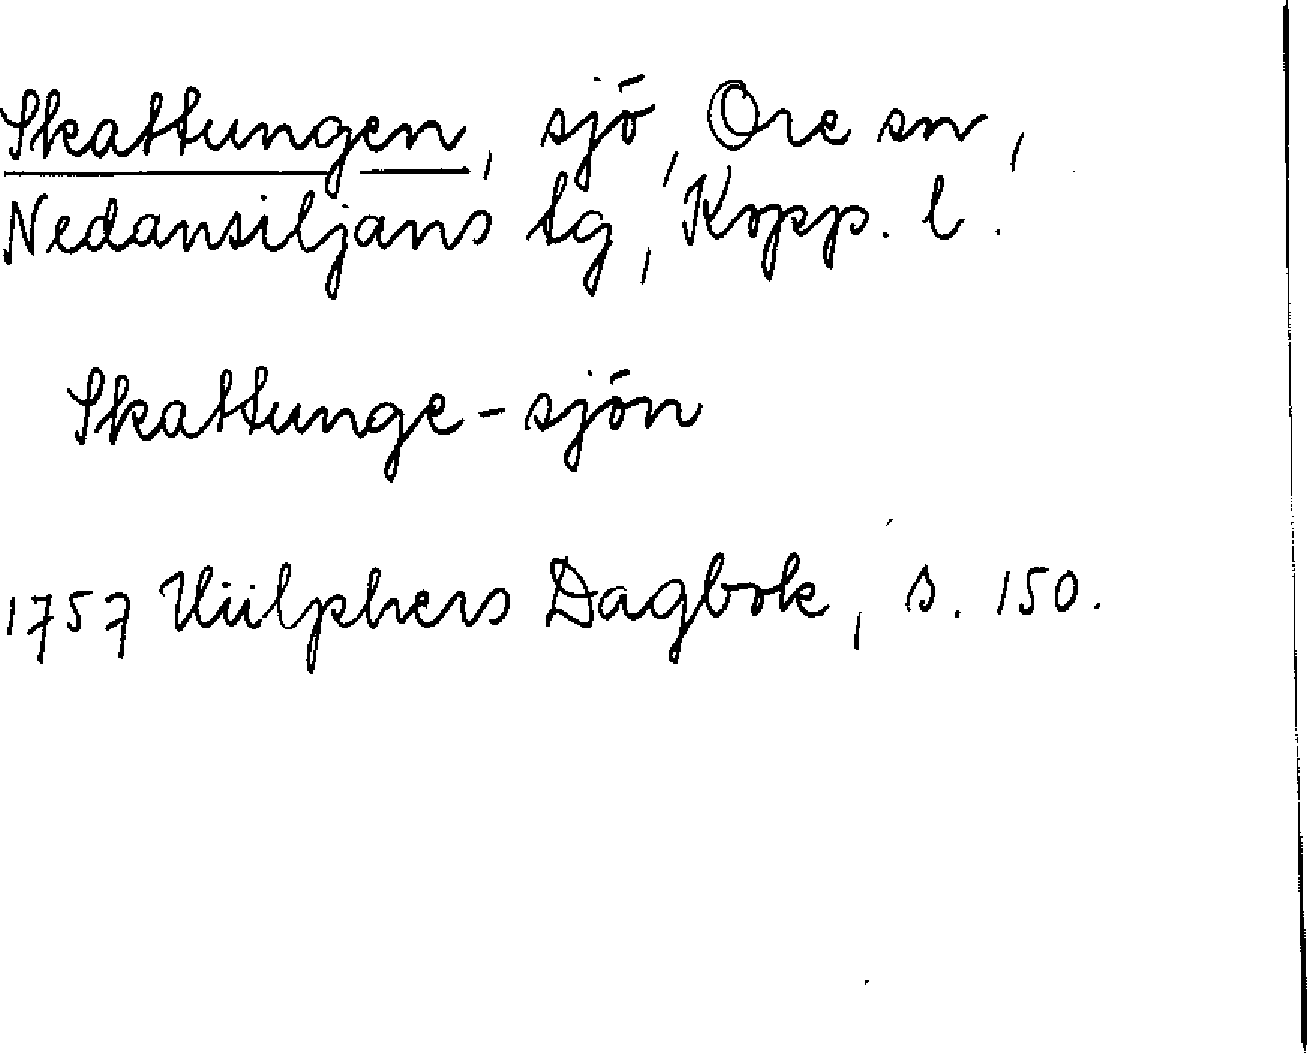 Skattungen, sjö, Ore sn,
Nedansiljans tg, Kopp. l.
Skattunge-sjön
1757 Hülphers Dagbok, s. 150.